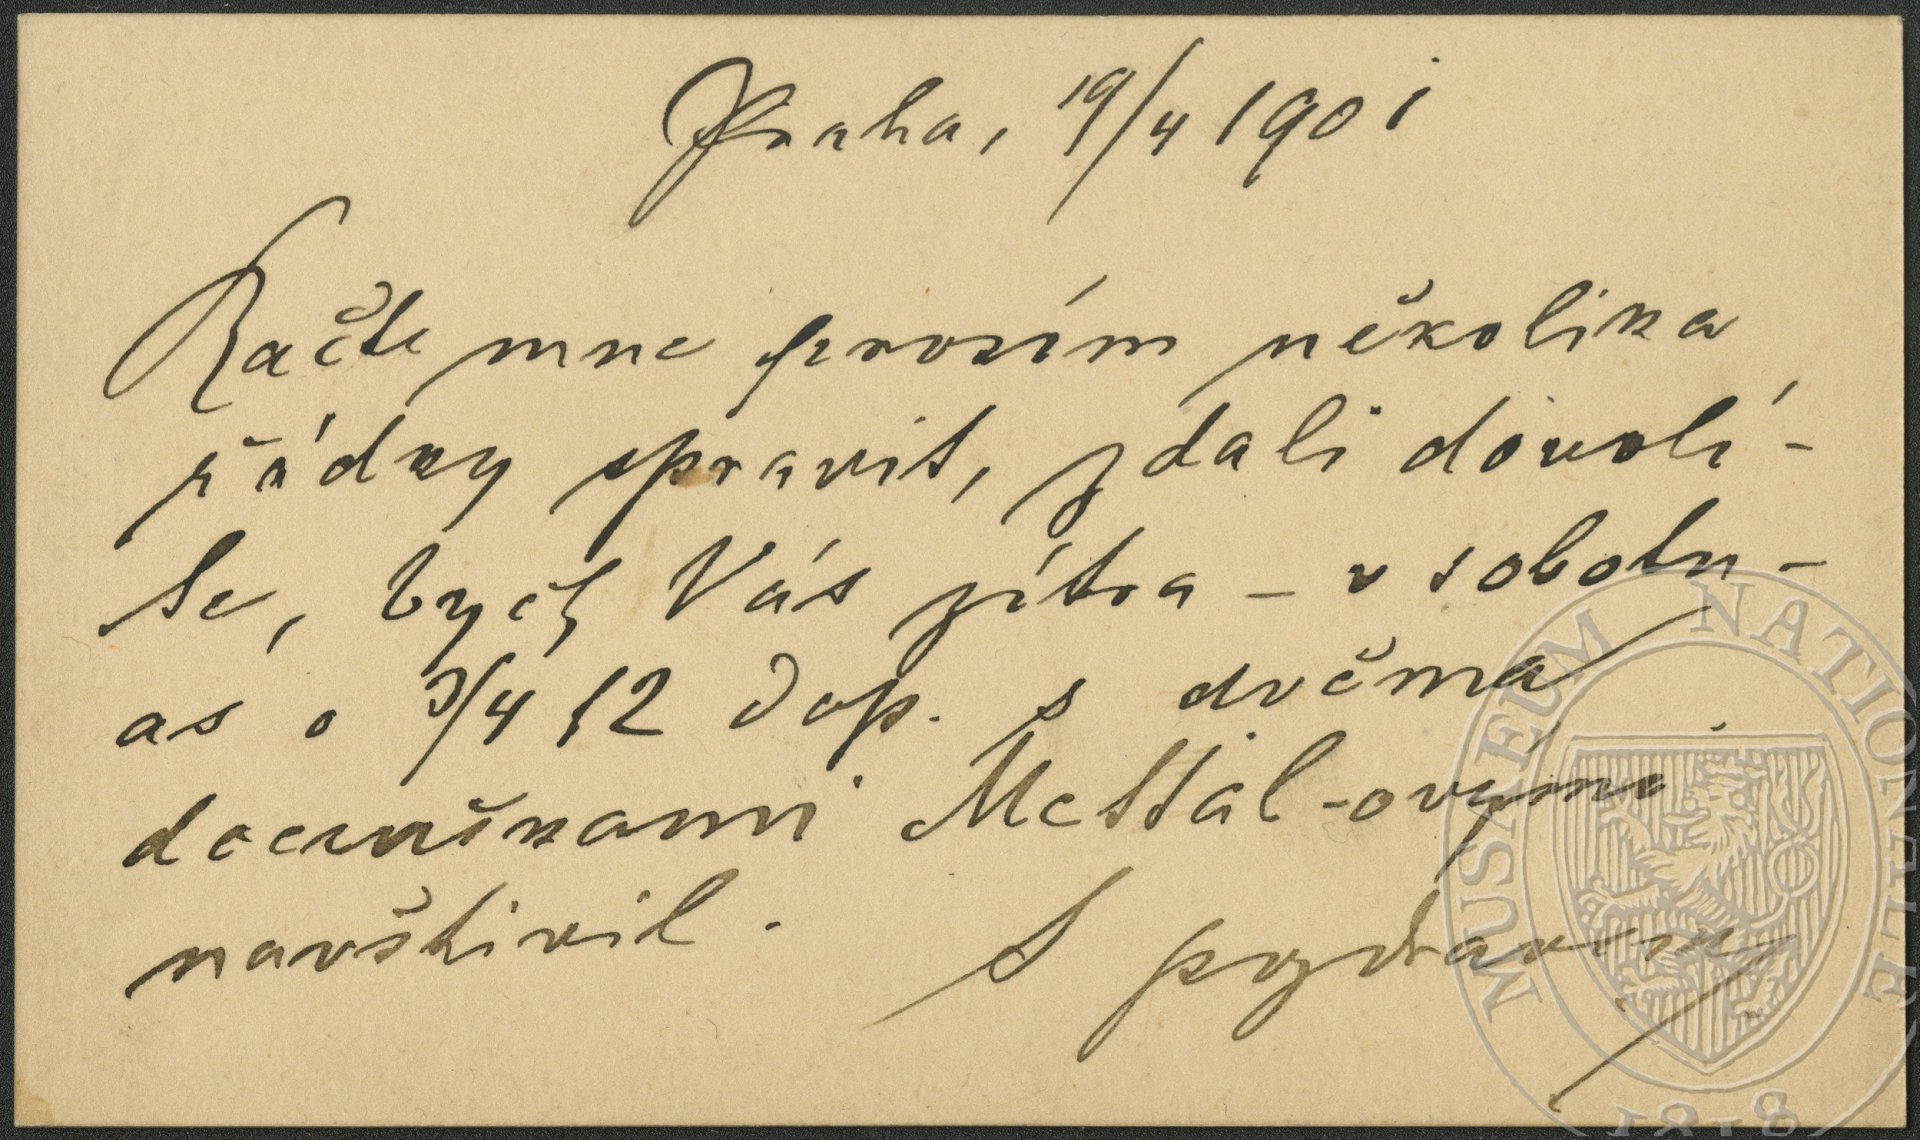 Praha, 19/4 1901
Račte mne prosím několika
řádky spravit, zdali dovolí-
te, bych Vás zítra – v sobotu –
as o 3/4 12 dop. s dvěma
dceruškami Mettal-ovými
navštívil.
S pozdravem
MUSEUM NATIONALE
1818